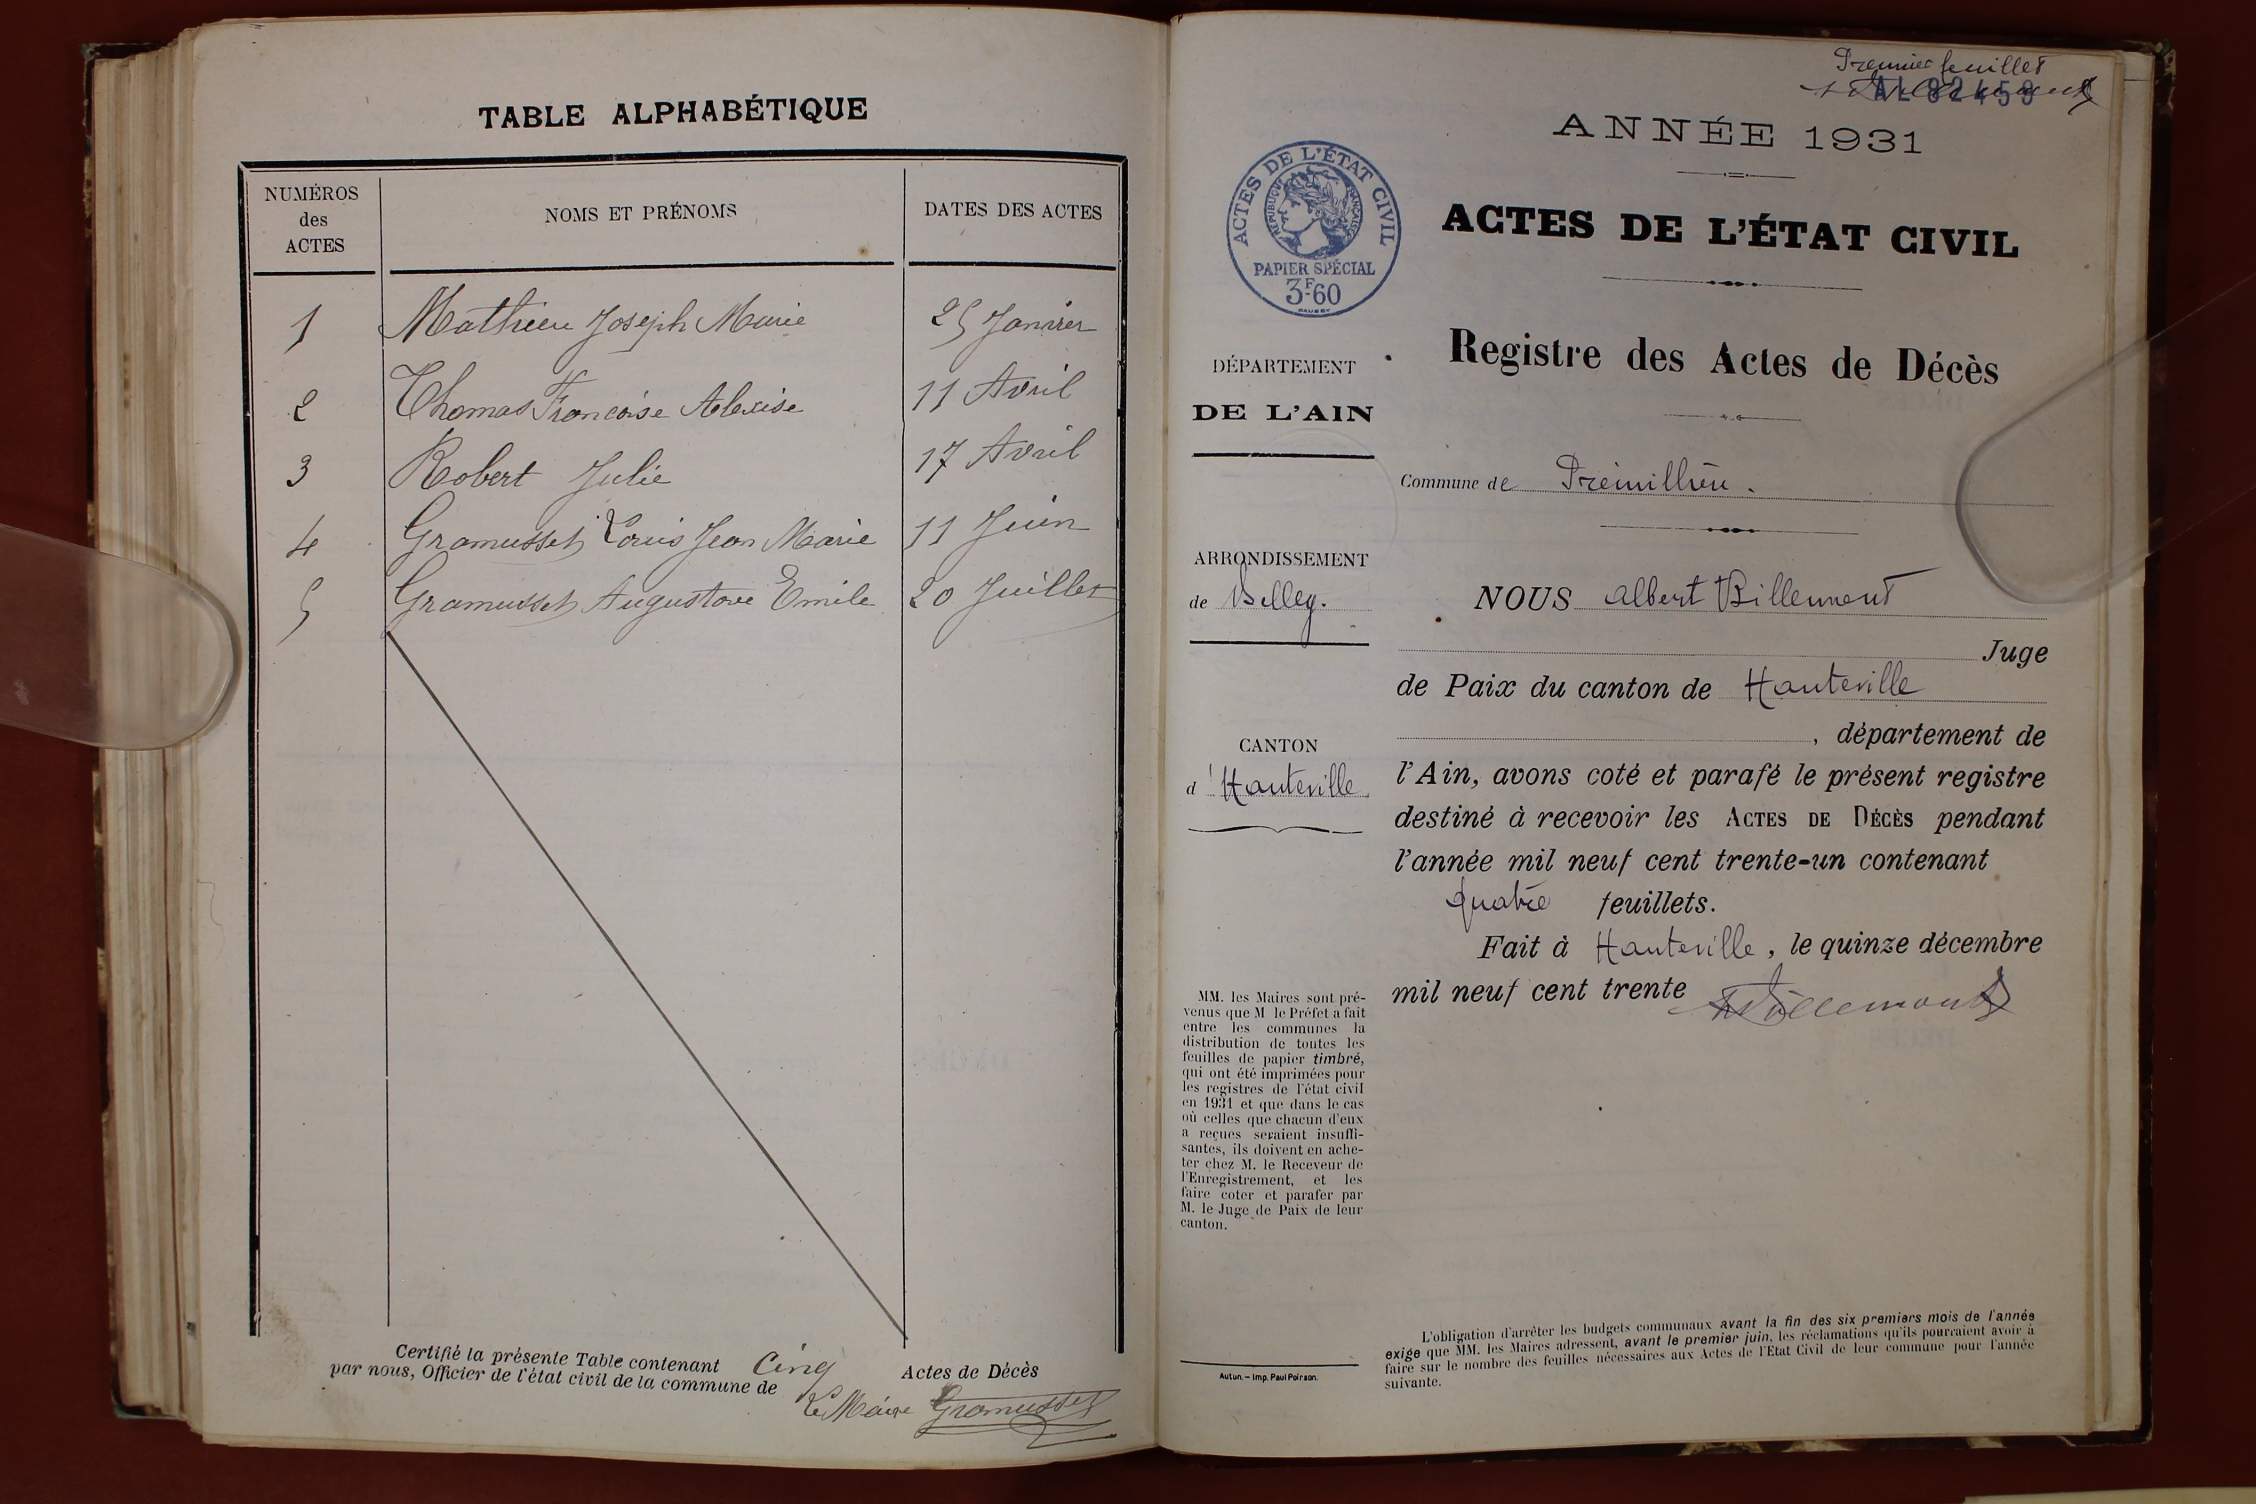 TABLE ALPHABÉTIQUE
NUMÉROS
des
ACTES
NOMS ET PRÉNOMS
DATES DES ACTES
1 Mathieu Joseph Marie 25 Janvier
2 Thomas Françoise Alexise 11 Avril
3 Robert Julie 17 Avril
4 Gramusset Louis Jean Marie 11 Juin
5 Gramusset Augustave Emile 20 Juillet
Certifié la présente Table contenant Cinq Actes de Décès
par nous, Officier de l'état civil de la commune de
Le Maire Gramusset
Premier feuillet
AL 82458
ANNÉE 1931
ACTES DE L'ÉTAT CIVIL
RÉPUBLIQUE FRANÇAISE
PAPIER SPÉCIAL
3F-60
ACTES DE L'ÉTAT CIVIL
Registre des Actes de Décès
DÉPARTEMENT
DE L'AIN
Commune de Prémillieu.
ARRONDISSEMENT
de Belley.
NOUS Albert Billemont
Juge
de Paix du canton de Hauteville
, département de
CANTON
d'Hauteville
l'Ain, avons coté et parafé le présent registre
destiné à recevoir les ACTES DE DÉCÈS pendant
l'année mil neuf cent trente-un contenant
quatre feuillets.
Fait à Hauteville, le quinze décembre
mil neuf cent trente
MM. les Maires sont pré-
venus que M le Préfet a fait
entre les communes la
distribution de toutes les
feuilles de papier timbré,
qui ont été imprimées pour
les registres de l'état civil
en 1931 et que dans le cas
où celles que chacun d'eux
a reçues seraient insuffi-
santes, ils doivent en ache-
ter chez M. le Receveur de
l'Enregistrement, et les
faire coter et parafer par
M. le Juge de Paix de leur
canton.
Autun. — Imp. Paul Poirson.
L'obligation d'arrêter les budgets communaux avant la fin des six premiers mois de l'année
exige que MM. les Maires adressent, avant le premier juin, les réclamations qu'ils pourraient avoir à
faire sur le nombre des feuilles nécessaires aux Actes de l'Etat Civil de leur commune pour l'année
suivante.